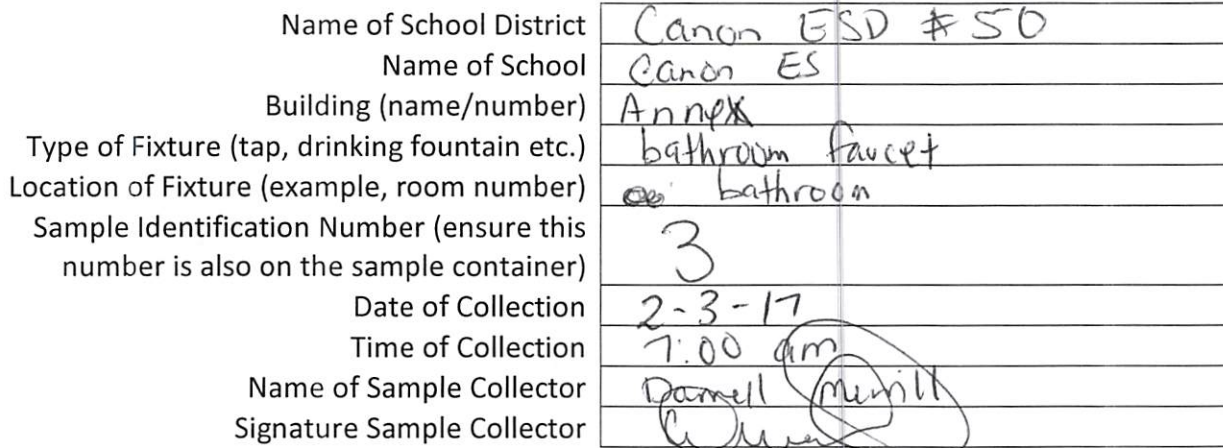 Name of School District Canon ESD # 50
Name of School Canon ES
Building (name/number) Annex
Type of Fixture (tap, drinking fountain etc.) bathroom faucet
Location of Fixture (example, room number) bathroom
Sample Identification Number (ensure this
number is also on the sample container) 3
Date of Collection 2-3-17
Time of Collection 7:00 am
Name of Sample Collector Darrell Merrill
Signature Sample Collector